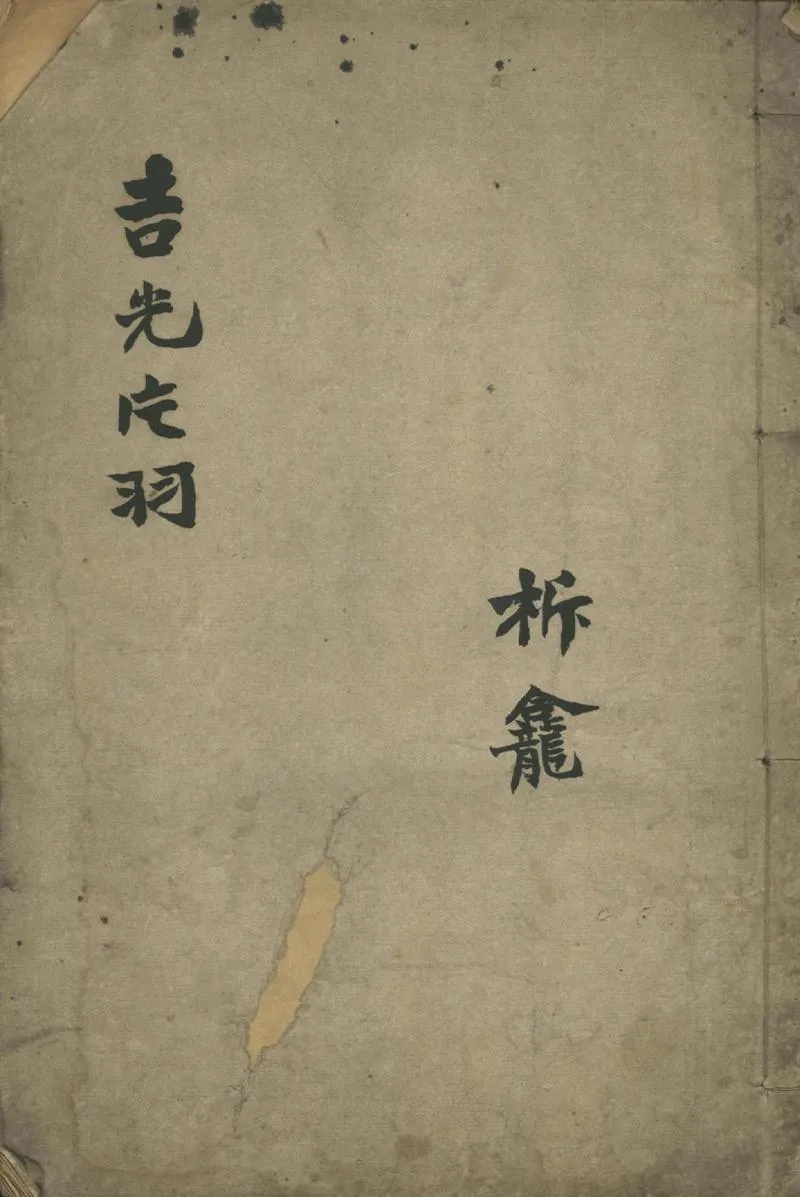 吉光片羽
析龕